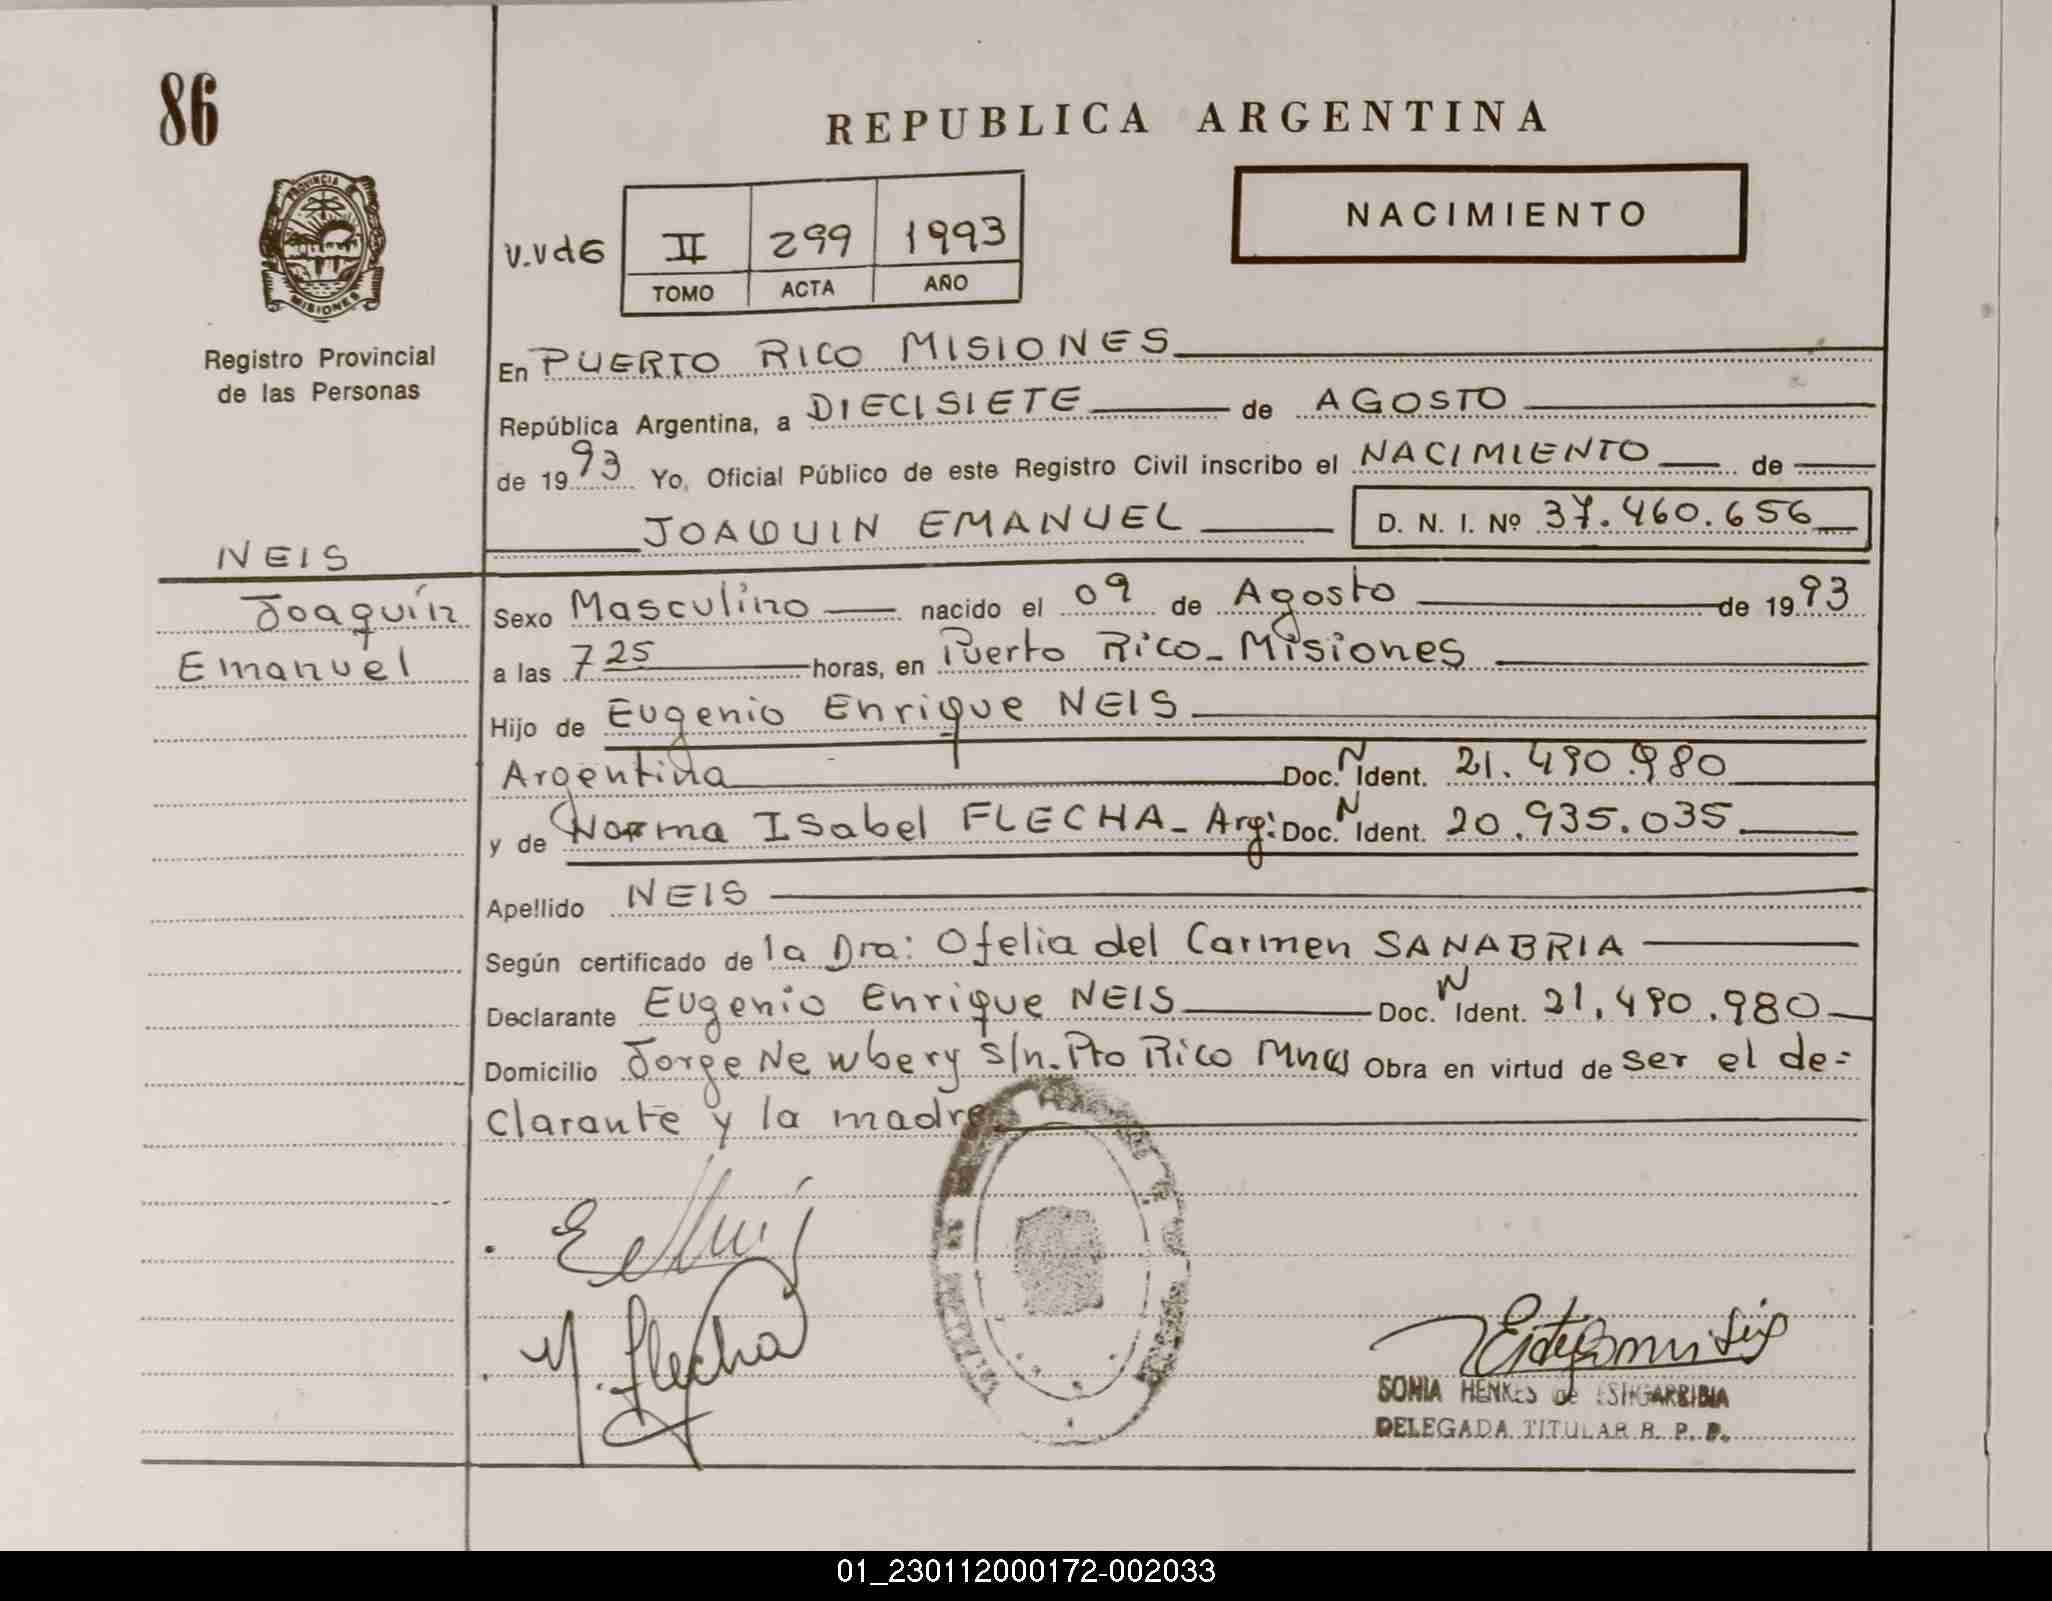 86
REPUBLICA ARGENTINA
PROVINCIA
MISIONES
NACIMIENTO
II 299 1993
TOMO ACTA AÑO
Registro Provincial
de las Personas
En PUERTO RICO MISIONES
República Argentina, a DIECISIETE de AGOSTO
de 1993 Yo, Oficial Público de este Registro Civil inscribo el NACIMIENTO de
JOAQUIN EMANUEL D. N. I. Nº 37.460.656
NEIS
Joaquín
Emanuel
Sexo Masculino nacido el 09 de Agosto de 1993
a las 7 25 horas, en Puerto Rico - Misiones
Hijo de Eugenio Enrique NEIS
Argentina Doc. N Ident. 21.490.980
y de Norma Isabel FLECHA - Arg: Doc. N Ident. 20.935.035
Apellido NEIS
Según certificado de la Dra: Ofelia del Carmen SANABRIA
Declarante Eugenio Enrique NEIS Doc. N Ident. 21.490.980
Domicilio Jorge Newbery s/n. Pto Rico Mnes Obra en virtud de ser el de=
clarante y la madre
N. Flecha
SONIA HENKES de ESIGARRIBIA
DELEGADA TITULAR R. P. P.
01_230112000172-002033